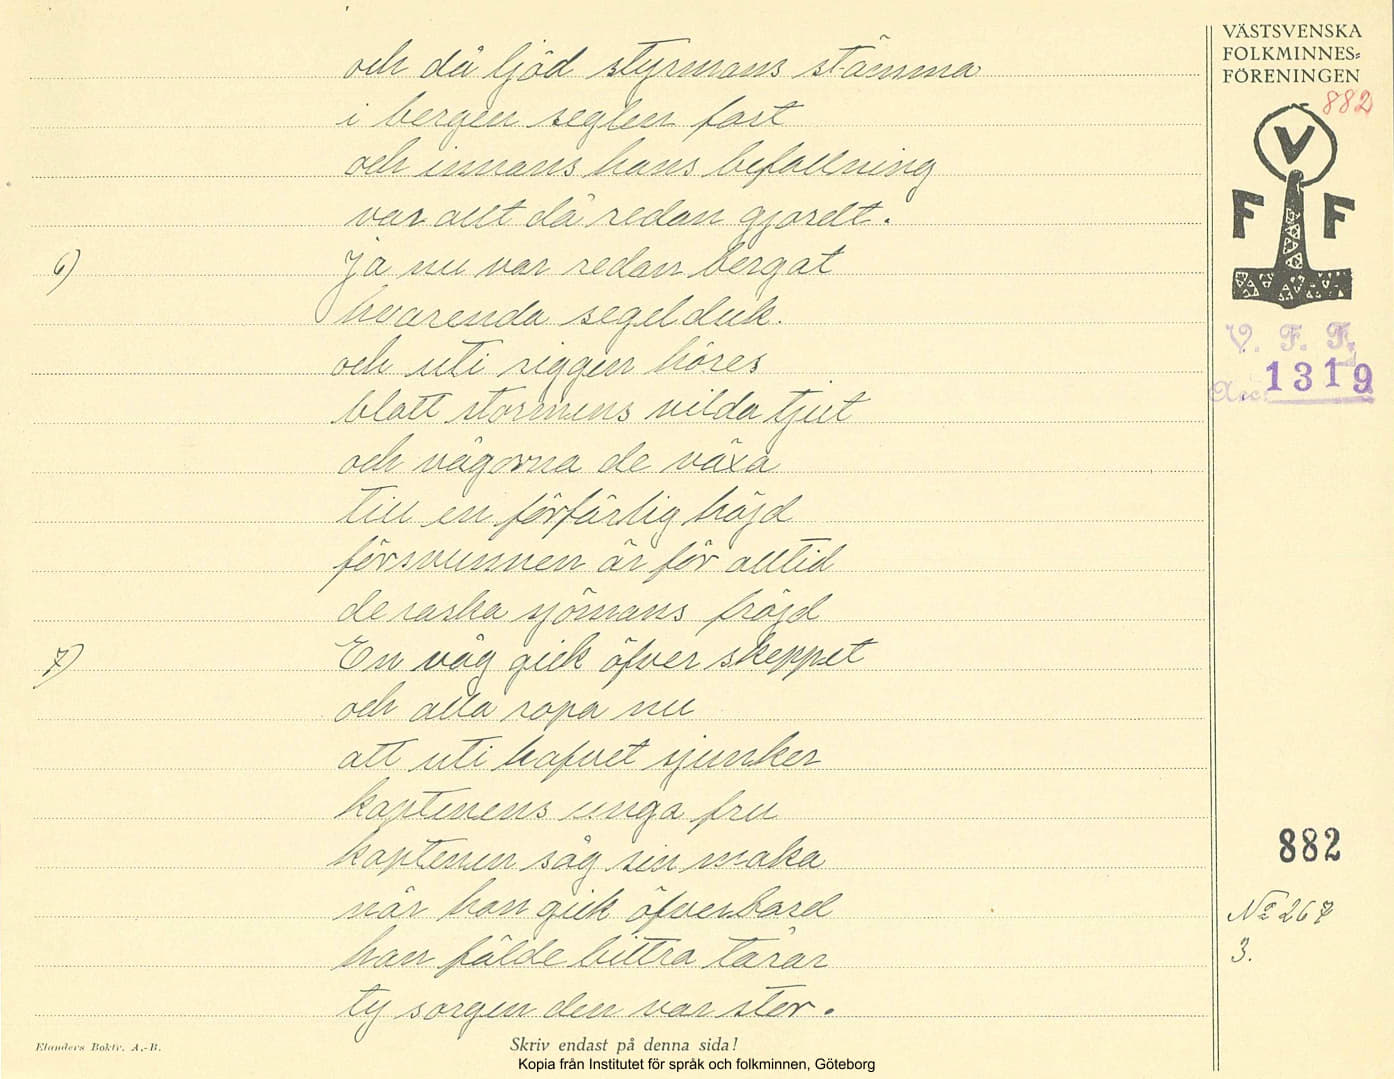 och då ljöd styrmans stämma
i bergen seglen fast
och innans hans befallning
var allt då redan gjordt.
6) Ja nu var redan bergat
hvarenda segelduk.
och uti riggen höres
blott stormens vilda tjut
och vågorna de växa
till en förfärlig höjd
försvunnen är för alltid
de raska sjömans fröjd
7) En våg gick öfver skeppet
och alla ropa nu
att uti hafvet sjunker
kaptenens unga fru
kaptenen såg sin maka
när hon gick öfverbord
han fälde bittra tårar
ty sorgen den var stor.
Elanders Boktr. A.-B.
Skriv endast på denna sida!
Kopia från Institutet för språk och folkminnen, Göteborg
VÄSTSVENSKA
FOLKMINNES=
FÖRENINGEN
882
V
F F
V. F. F.
Acc. 1319
882
No 267
3.